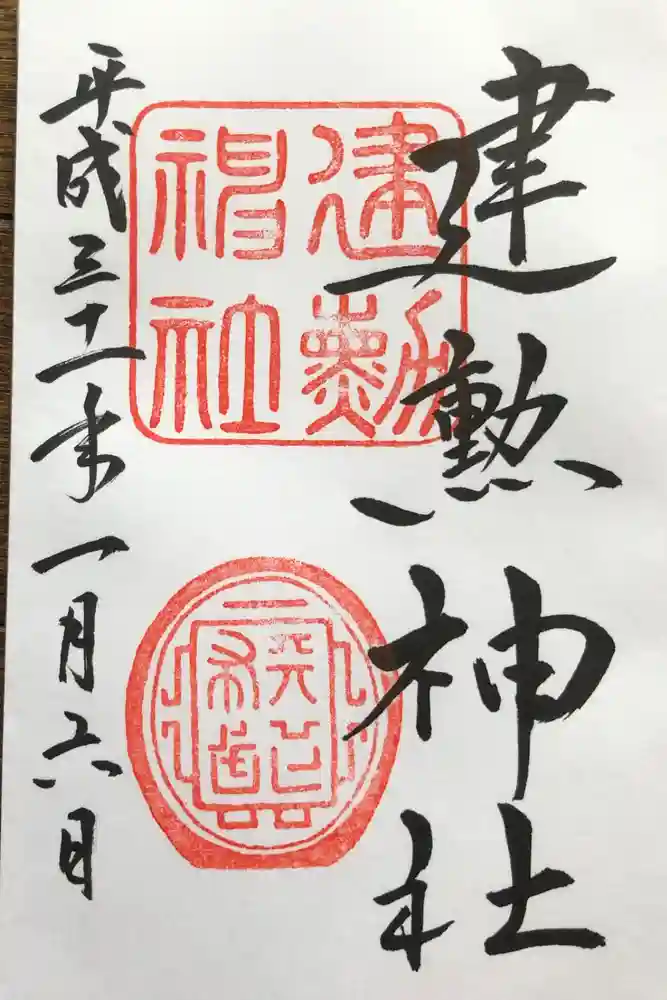 建勲神社
平成三十一年一月六日
建勲
神社